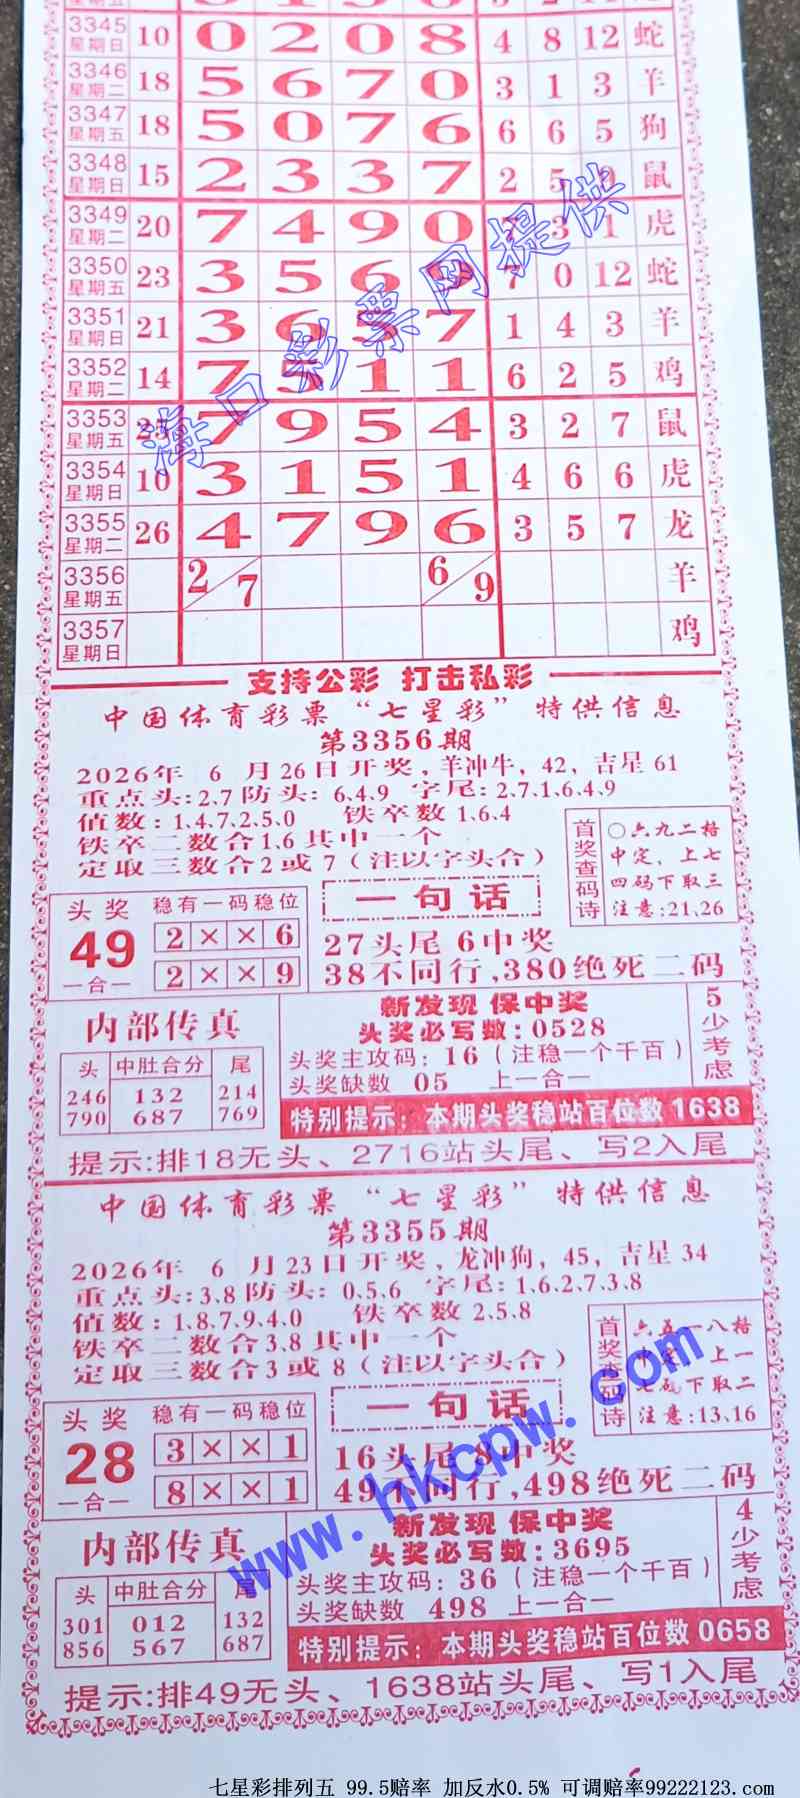 3345 星期日 10 0 2 0 8 4 8 12 蛇
3346 星期二 18 5 6 7 0 3 1 3 羊
3347 星期五 18 5 0 7 6 6 6 5 狗
3348 星期日 15 2 3 3 7 2 5 鼠
3349 星期二 20 7 4 9 0 3 1 虎
3350 星期五 23 3 5 6 7 0 12 蛇
3351 星期日 21 3 6 5 7 1 4 3 羊
3352 星期二 14 7 5 1 1 6 2 5 鸡
3353 星期五 25 7 9 5 4 3 2 7 鼠
3354 星期日 10 3 1 5 1 4 6 6 虎
3355 星期二 26 4 7 9 6 3 5 7 龙
3356 星期五 2/7 6/9 羊
3357 星期日 鸡
海口彩票网提供
支持公彩 打击私彩
中国体育彩票“七星彩”特供信息
第3356期
2026年 6 月26日开奖,羊冲牛,42,吉星61
重点头:2.7防头: 6.4.9 字尾:2.7.1.6.4.9
值数:1.4.7.2.5.0 铁卒数1.6.4
铁卒二数合1.6其中一个
定取三数合2或7(注以字头合)
首奖查码诗
○六九二格
中定,上七
四码下取三
注意:21.26
头奖
49
一合一
稳有一码稳位
2 × × 6
2 × × 9
一句话
27头尾 6中奖
38不同行,380绝死二码
内部传真
头 中肚合分 尾
246 132 214
790 687 769
新发现 保中奖
头奖必写数:0528
头奖主攻码: 16 (注稳一个千百)
头奖缺数 05 上一合一
5少考虑
特别提示:本期头奖稳站百位数1638
提示:排18无头、2716站头尾、写2入尾
中国体育彩票“七星彩”特供信息
第3355期
2026年 6 月23日开奖,龙冲狗,45,吉星34
重点头:3.8防头: 0.5.6 字尾:1.6.2.7.3.8
值数:1.8.7.9.4.0 铁卒数2.5.8
铁卒二数合3.8其中一个
定取三数合3或8(注以字头合)
首奖查码诗
六五一八格
中定,上一
七码下取二
注意:13.16
头奖
28
一合一
稳有一码稳位
3 × × 1
8 × × 1
一句话
16头尾8中奖
49不同行,498绝死二码
www.hkcpw.com
内部传真
头 中肚合分 尾
301 012 132
856 567 687
新发现 保中奖
头奖必写数:3695
头奖主攻码:36 (注稳一个千百)
头奖缺数 498 上一合一
4少考虑
特别提示:本期头奖稳站百位数0658
提示:排49无头、1638站头尾、写1入尾
七星彩排列五 99.5赔率 加反水0.5% 可调赔率99222123.com